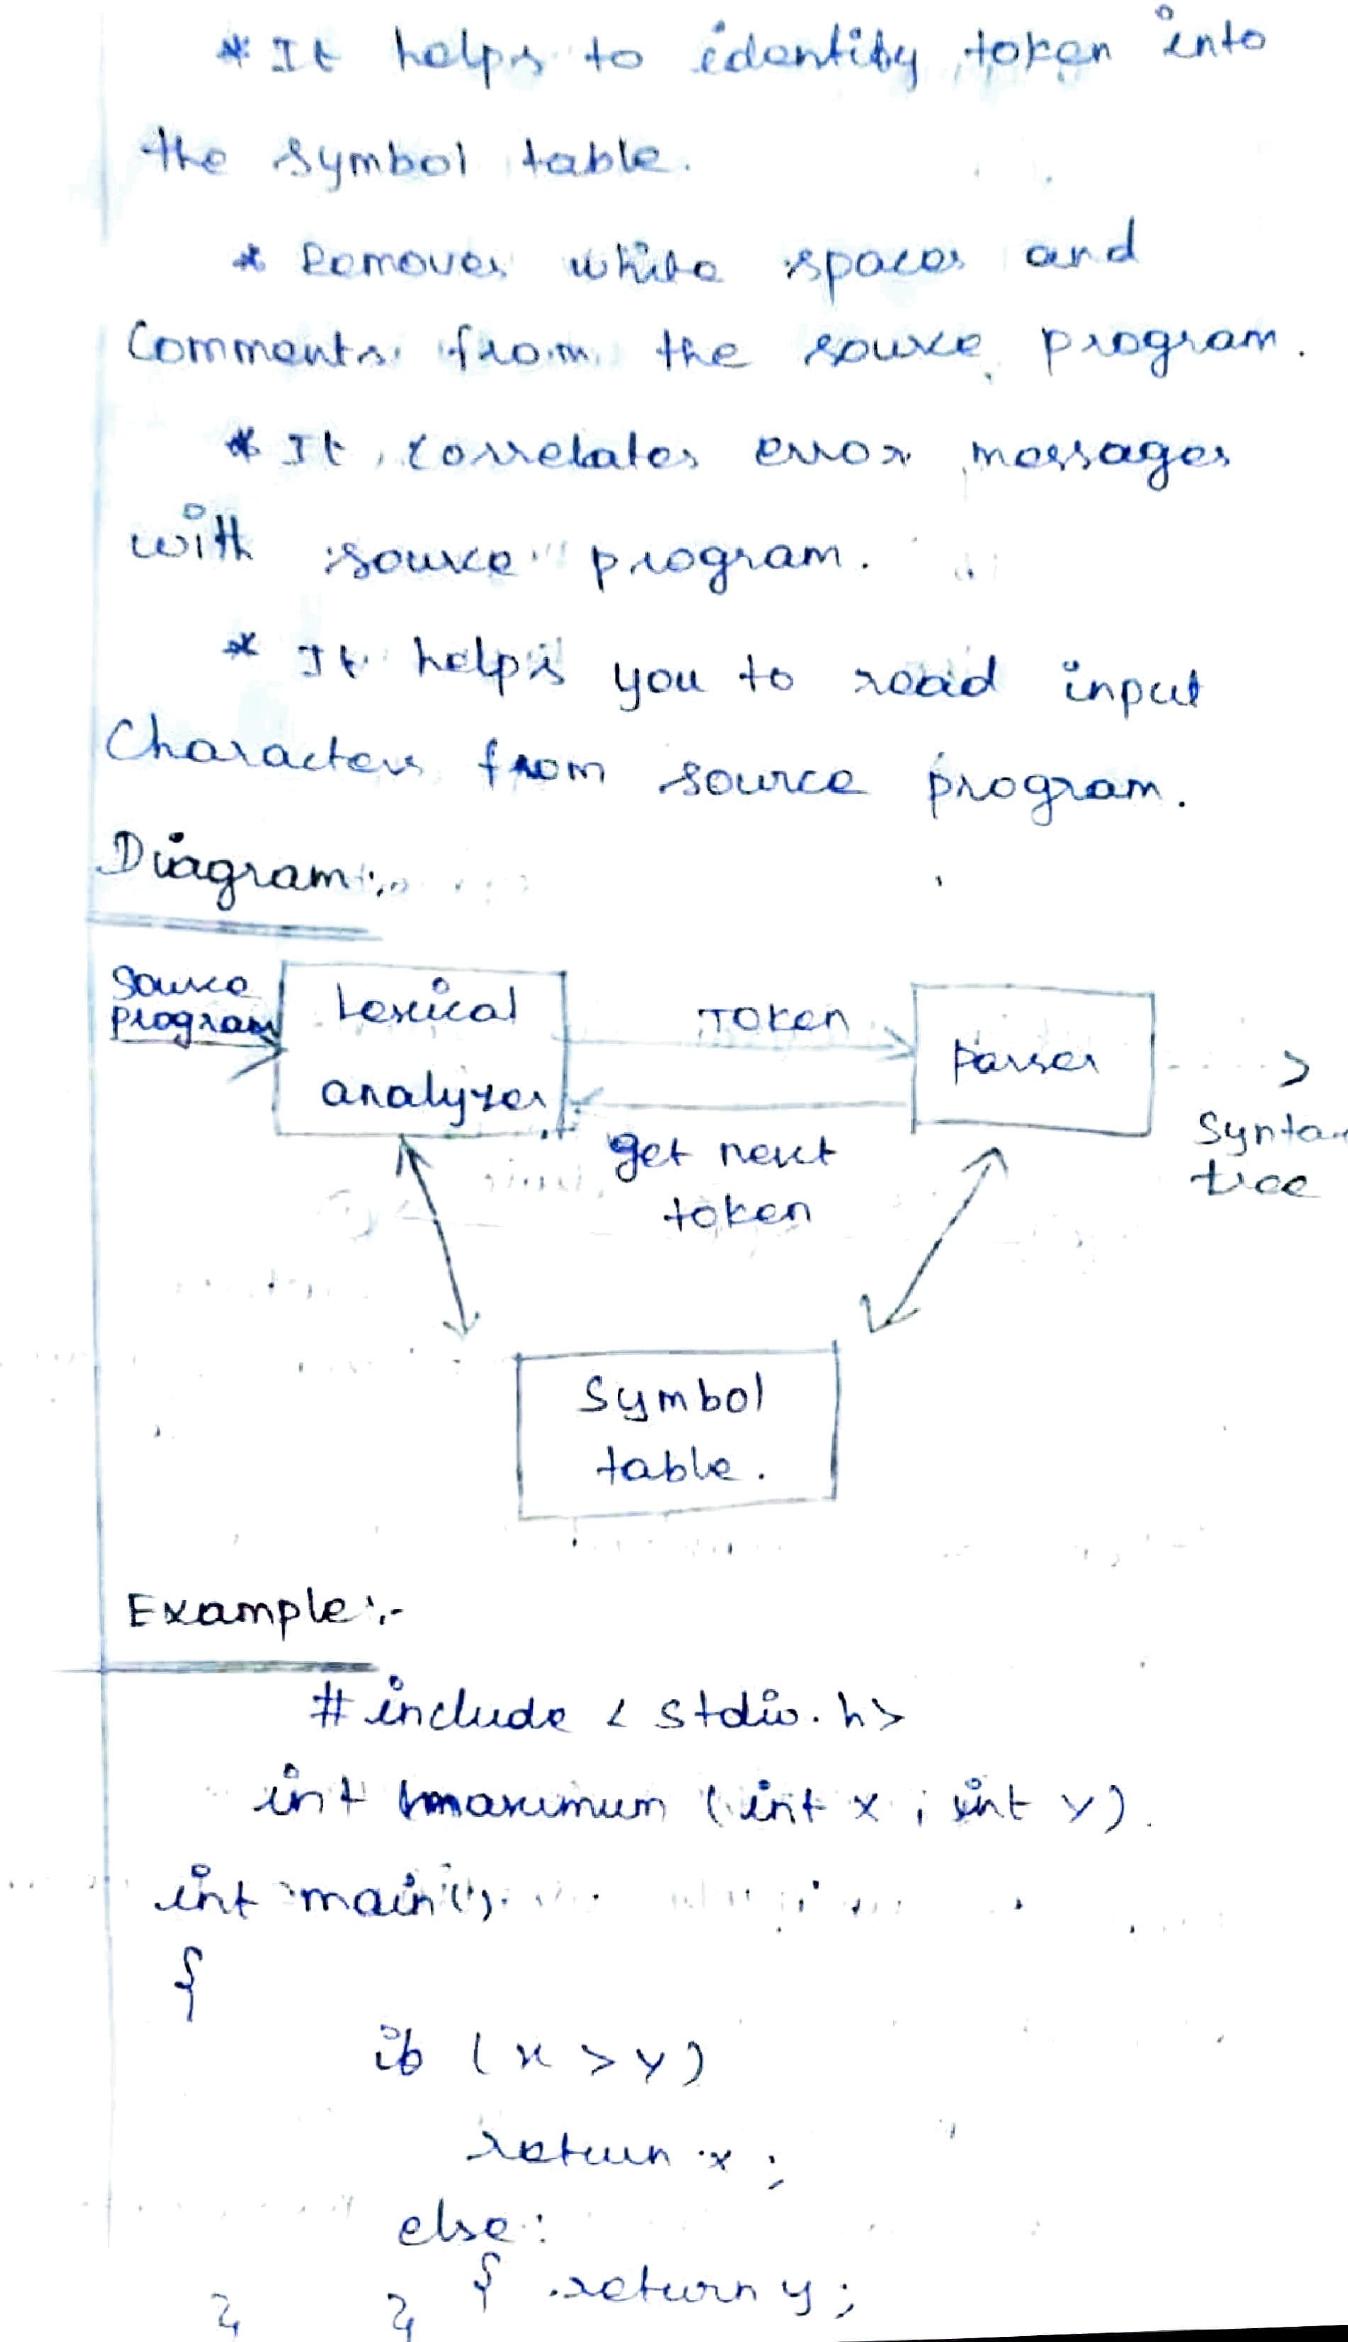 * It helps to identify token into
the symbol table.
* Removes white spaces and
Comments from the source program.
* It correlates error messages
with source program.
* It helps you to read input
Characters from source program.
Diagram:-
Source
program
Lexical
analyzer
Token
get next
token
Parser
Synta
tree
Symbol
table.
Example:-
#include < stdio.h>
int maximum (int x ; int y).
int main().
{
if (x > y)
return x ;
else :
{ return y ;
} }